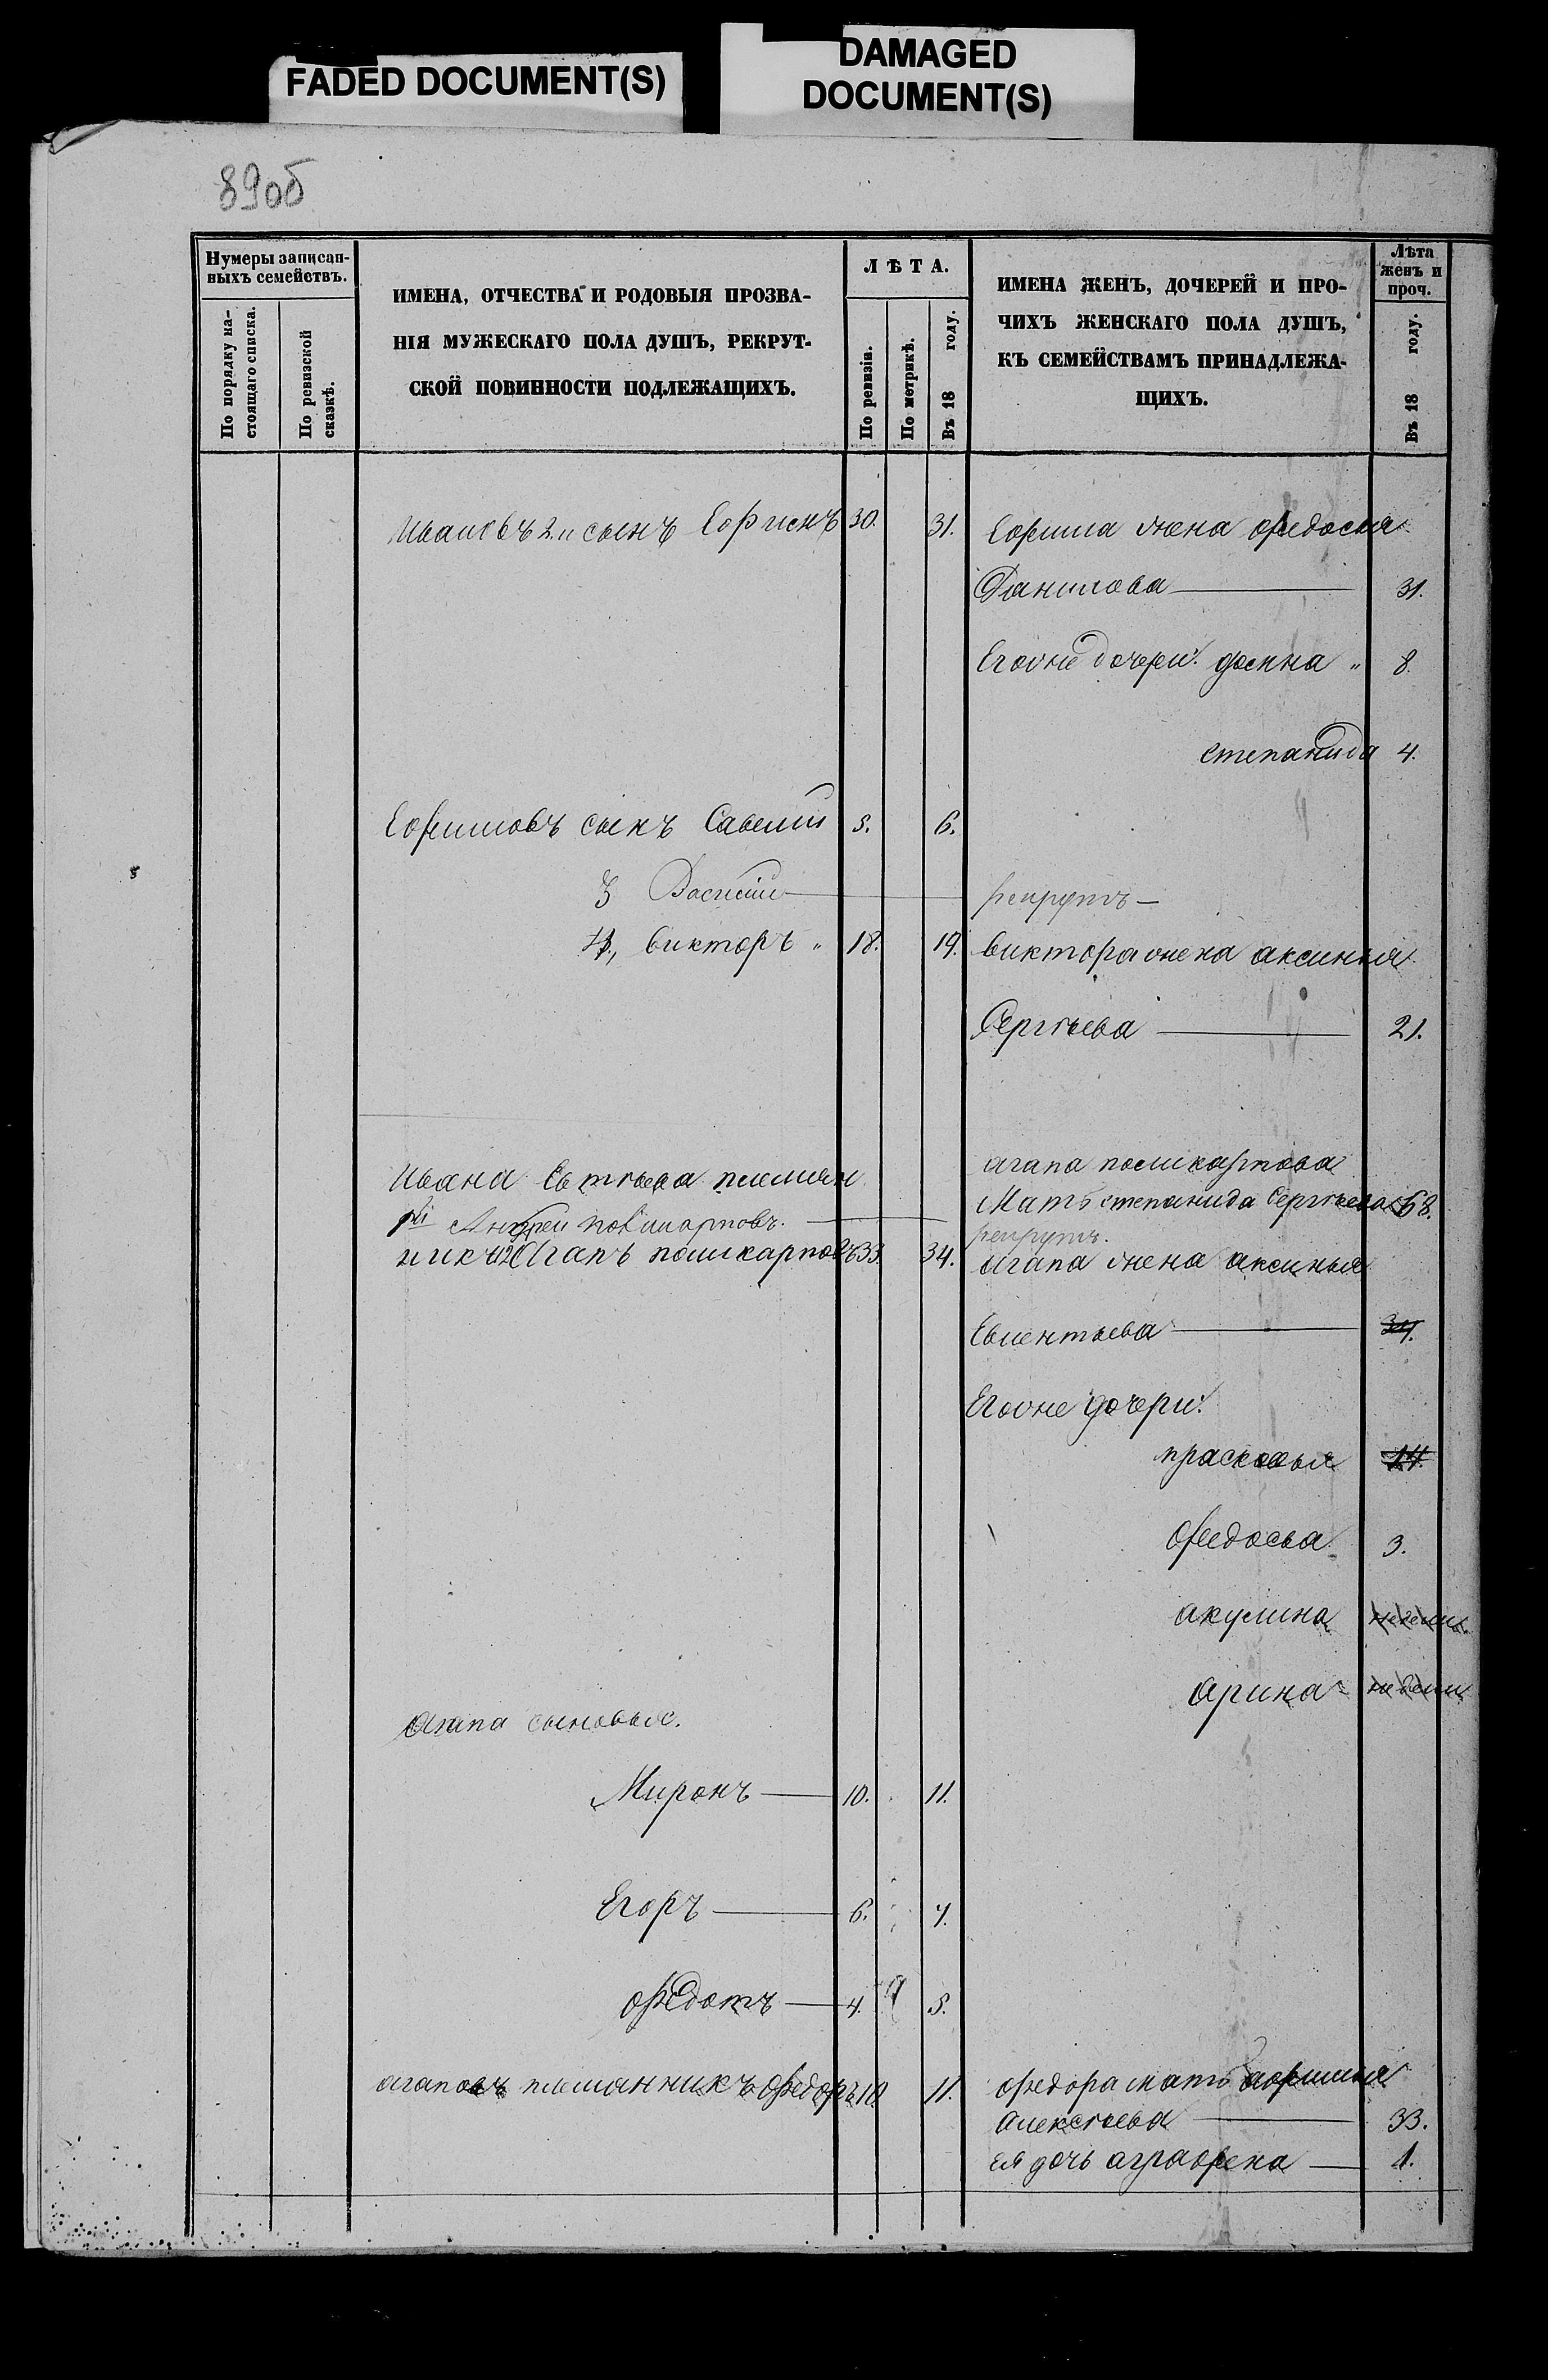 FADED DOCUMENT(S)
DAMAGED
DOCUMENT(S)
89об
Нумеры записан-
ныхъ семействъ.
По порядку на-
стоящаго списка.
По ревизской
сказкѣ.
ИМЕНА, ОТЧЕСТВА И РОДОВЫЯ ПРОЗВА-
НІЯ МУЖЕСКАГО ПОЛА ДУШЪ, РЕКРУТ-
СКОЙ ПОВИННОСТИ ПОДЛЕЖАЩИХЪ.
ЛѢТА.
По ревизіи.
По метрикѣ.
Въ 18 году.
ИМЕНА ЖЕНЪ, ДОЧЕРЕЙ И ПРО-
ЧИХЪ ЖЕНСКАГО ПОЛА ДУШЪ,
КЪ СЕМЕЙСТВАМЪ ПРИНАДЛЕЖА-
ЩИХЪ.
Лѣта
женъ и
проч.
Въ 18 году.
Ивановъ 2й сынъ Ефимъ 30. 31. Ефима жена федосья
Данилова 31.
Егоже дочери: 8.
степанида 4.
Ефимовъ сынъ Савелий 5. 6.
3 Василий рекрутъ
4, викторъ 18. 19. виктора жена аксинья
Сергѣева 21.
агапа поликарпова
Ивана племян
Мать степанида Сергѣева 68.
Андрей Поликарповъ. рекрутъ.
никъ Агапъ поликарповъ 33. 34. агапа жена аксинья
34.
Егоже дочери:
прасковья 14.
Федосья 3.
акулина недели.
арина недели
Агапа сыновья.
Миронъ 10. 11.
Егоръ 6. 7.
федотъ 4. 5.
агаповъ племянникъ федоръ 10 11. федора мать
алексѣева 33.
ея дочь аграфена 1.